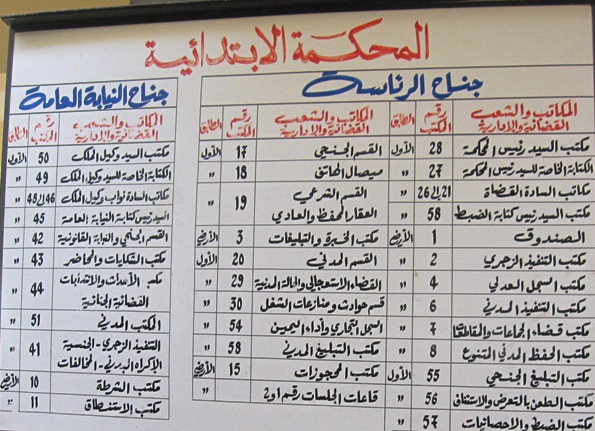 المحكمة الابتدائية
جناح الرئاسة
المكاتب والشعب القضائية والإدارية رقم المكتب الطابق
مكتب السيد رئيس المحكمة 28 الأول
الكتابة الخاصة للسيد رئيس المحكمة 27 "
مكاتب السادة القضاة 21 الى 26 "
مكتب السيد رئيس كتابة الضبط 58 "
الصندوق 1 الأرضي
مكتب التنفيذ الزجري 2 "
مكتب السجل العدلي 4 "
مكتب التنفيذ المدني 6 "
مكتب قضاء الجماعات والمقاطعات 7 "
مكتب الحفظ المدني المتنوع 8 "
مكتب التبليغ الجنحي 55 الأول
مكتب الطعن بالتعرض والاستئناف 56 "
مكتب الضبط والاحصائيات 57 "
المكاتب والشعب القضائية والإدارية رقم المكتب الطابق
القسم الجنحي 17 الأول
18 "
القسم الشرعي
العقار المحفظ والعادي 19 "
مكتب الخبرة والتبليغات 3 الأرضي
القسم المدني 20 الأول
القضاء الاستعجالي والحالة المدنية 29 "
قسم حوادث ومنازعات الشغل 30 "
السجل التجاري وأداء اليمين 54 "
مكتب التبليغ المدني 58 "
مكتب المحجوزات 15 الأرضي
قاعات الجلسات رقم 1 و 2 "
جناح النيابة العامة
المكاتب والشعب القضائية والإدارية رقم المكتب الطابق
مكتب السيد وكيل الملك 50 الأول
الكتابة الخاصة للسيد وكيل الملك 49 "
مكاتب السادة نواب وكيل الملك 46 الى 48 "
السيد رئيس كتابة النيابة العامة 45 "
القسم الجنحي والنيابة القانونية 42 "
مكتب الشكايات والمحاضر 43 "
مكتب الأحداث والانتدابات
القضائية الجنائية 44 "
المكتب المدني 51 "
التنفيذ الزجري - الجنسية
الإكراه البدني - المخالفات 41 "
مكتب الشرطة 10 الأرضي
مكتب الاستنطاق 11 "